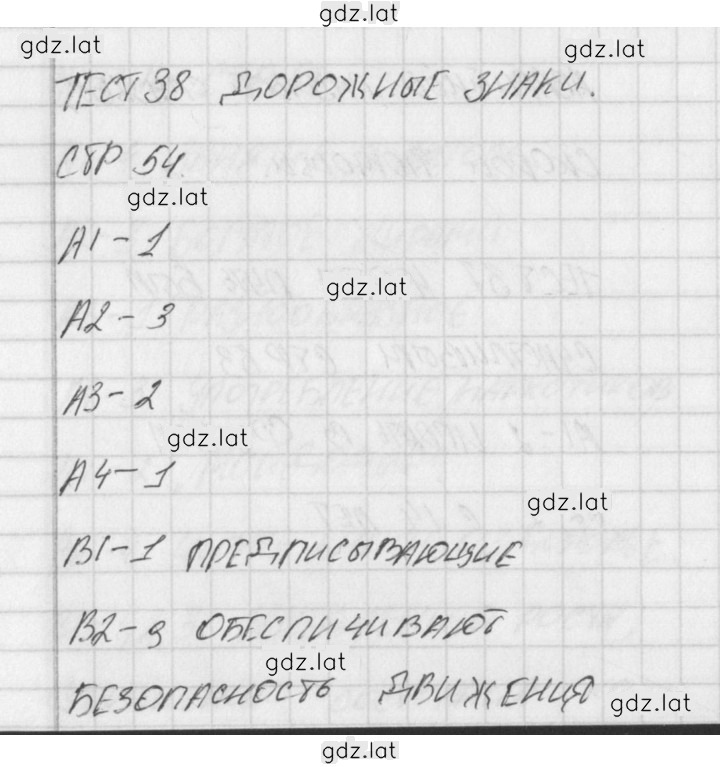 gdz.lat
gdz.lat
gdz.lat
ТЕСТ 38 ДОРОЖНЫЕ ЗНАКИ.
СТР 54.
gdz.lat
А1 – 1
gdz.lat
А2 – 3
А3 – 2
gdz.lat
А4 – 1
gdz.lat
В1 – 1 ПРЕДПИСЫВАЮЩИЕ
В2 – 3 ОБЕСПИЧИВАЮТ
gdz.lat
БЕЗОПАСНОСТЬ ДВИЖЕНИЯ
gdz.lat
gdz.lat